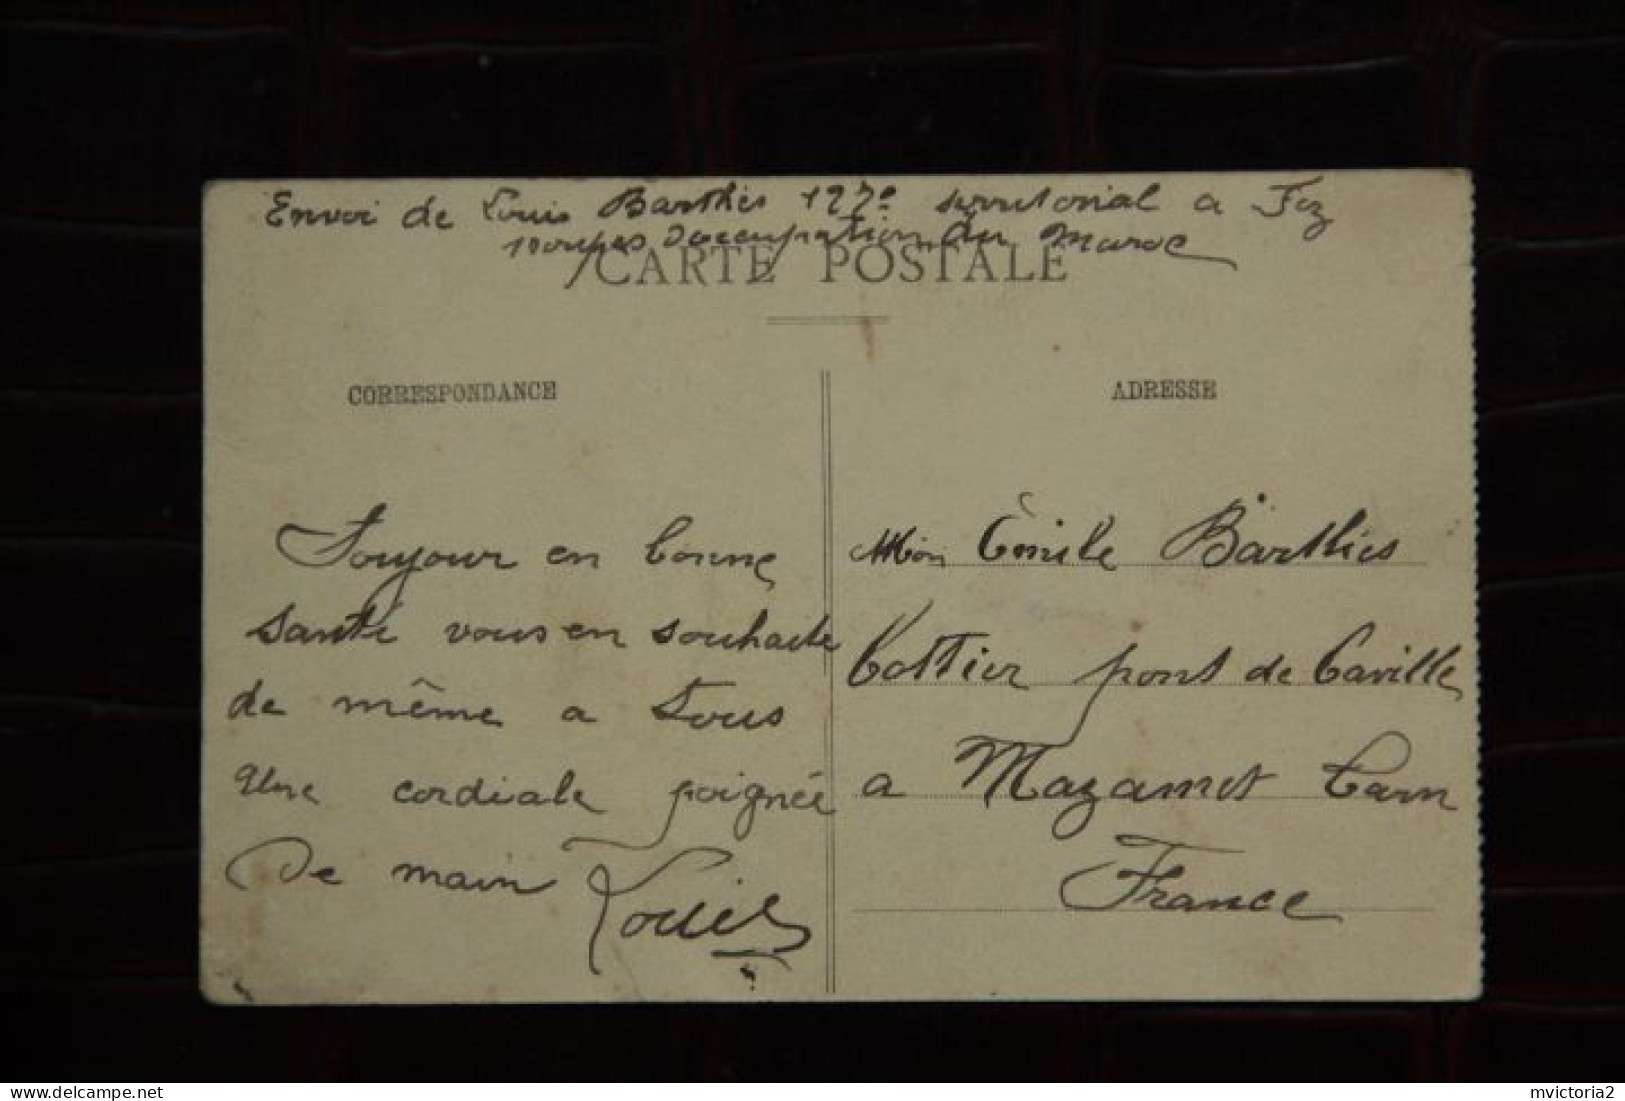 Envoi de Louis Barthés 127e territorial a Fez
troupes d'occupation du Maroc
CARTE POSTALE
CORRESPONDANCE
Toujour en bonne
santé vous en souhaite
de même a Tous
Une cordiale poignée
De main Louis
ADRESSE
Mon Émile Barthés
Cottier pont de Caville
a Mazamet Tarn
France
mvictoria2